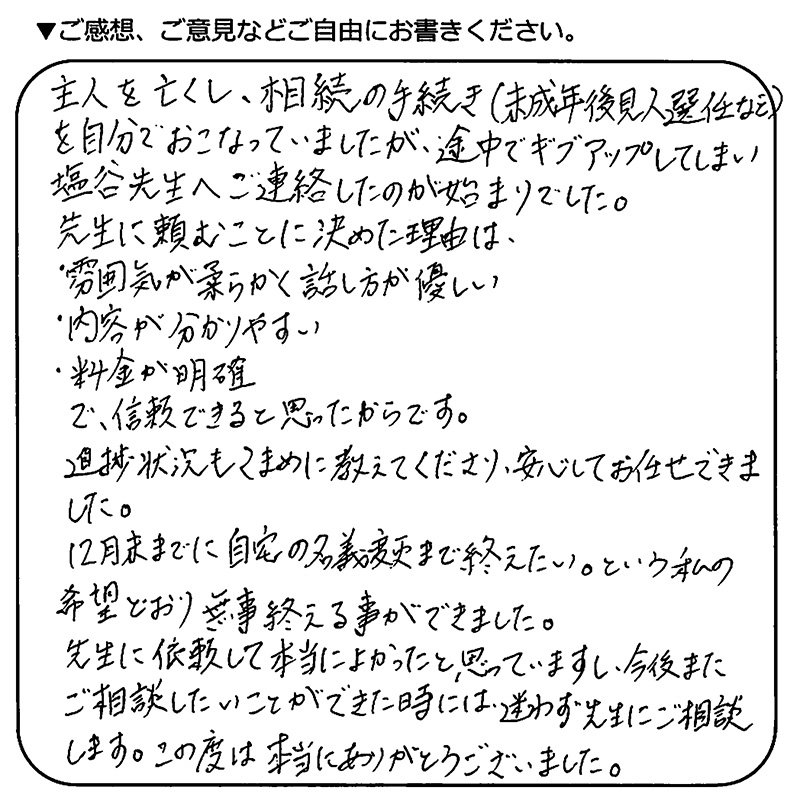 ▼ご感想、ご意見などご自由にお書きください。
主人を亡くし、相続の手続き(未成年後見人選任など)
を自分でおこなっていましたが、途中でギブアップしてしまい
塩谷先生へご連絡したのが始まりでした。
先生に頼むことに決めた理由は、
・雰囲気が柔らかく話し方が優しい
・内容が分かりやすい
・料金が明確
で、信頼できると思ったからです。
進捗状況もこまめに教えてくださり、安心してお任せできま
した。
12月末までに自宅の名義変更まで終えたい。という私の
希望どおり無事終える事ができました。
先生に依頼して本当によかったと思っていますし、今後また
ご相談したいことができた時には、迷わず先生にご相談
します。この度は本当にありがとうございました。